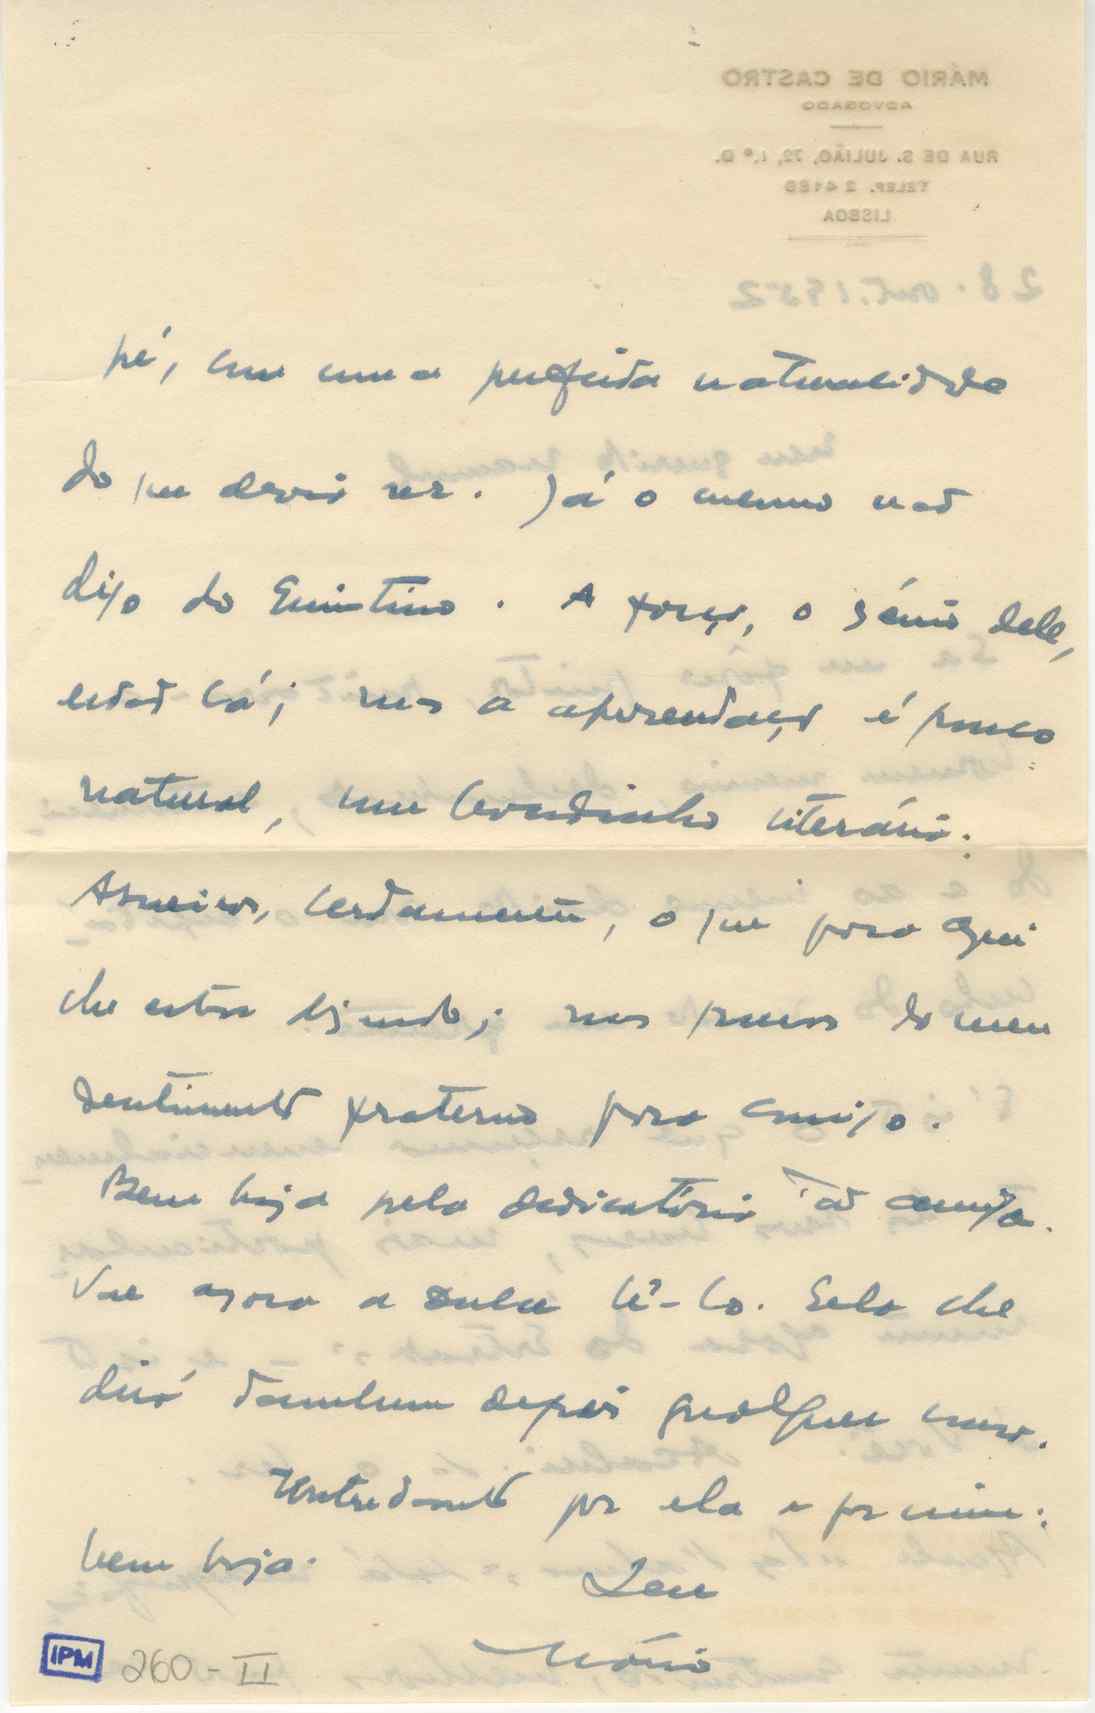 MÁRIO DE CASTRO
ADVOGADO
RUA DE S. JULIÃO, 72, 1.º D.
TELEF. 2 4186
LISBOA
28. out. 1952
pé, com uma perfeita naturalidade
do que devia ser. Já o mesmo não
digo do Quintino. A força, o génio dele,
estão lá; mas a apresentação é pouco
natural, um bocadinho literária.
Asneiras, certamente, o que para aqui
lhe estou dizendo; mas puras do meu
sentimento fraterno para consigo.
Bem haja pela dedicatória tão amiga.
Vai agora a Dulce lê-lo. Ela lhe
dirá também depois qualquer coisa.
Entretanto por ela e por mim:
bem haja.
Seu
Mário
IPM 260-II